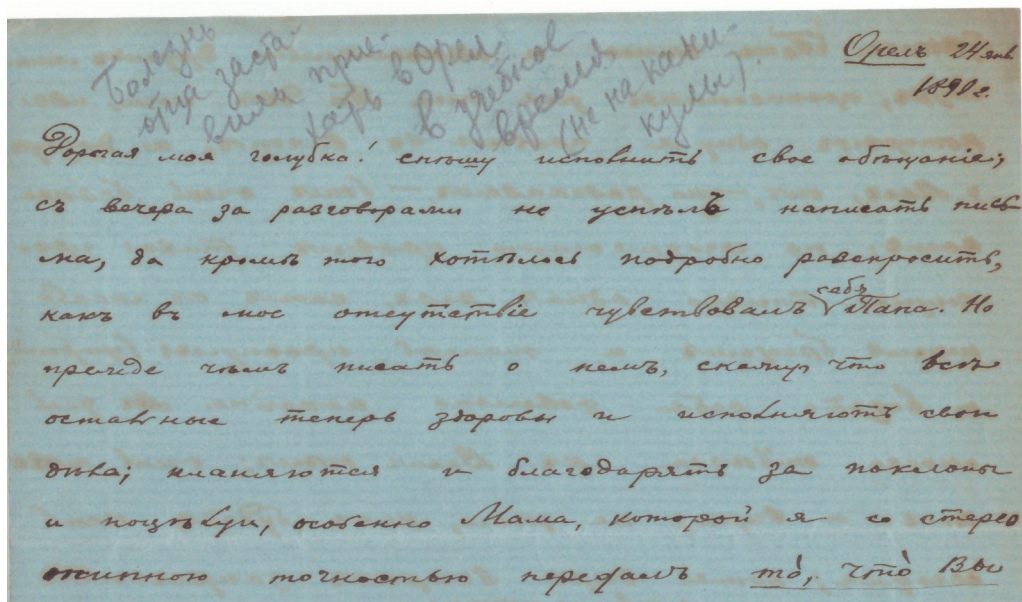 Болезнь
отца заста-
вила прие-
хать в Орел
в учебное
время
(не на кани-
кулы).
Орелъ 24 янв
1890 г.
Дорогая моя голубка! спѣшу исполнить свое обѣщаніе;
съ вечера за разговорами не успѣлъ написать пись
ма, да кромѣ того хотѣлось подробно разспросить,
какъ въ мое отсутствіе чувствовалъ себя Папа. Но
прежде чѣмъ писать о немъ, скажу что всѣ
остальные теперь здоровы и исполняютъ свои
дѣла; кланяются и благодарятъ за поклоны
и поцѣлуи, особенно Мама, которой я со стерео
типною точностью передалъ то̀, что̀ Вы